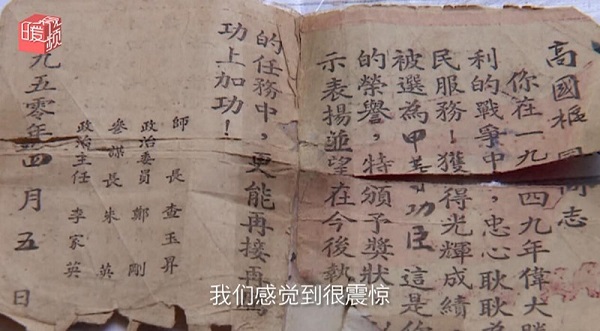 高國樞同志
你在一九四九年偉大
利的戰爭中,忠心耿耿
民服務!獲得光輝成績
被選為甲等功臣 這是
的榮譽,特頒予獎狀
示表揚並望在今後執
的任務中,更能再接再
功上加功!
師長 查玉昇
政治委員 鄭剛
參謀長 朱英
政治主任 李家英
九五零年四月五日
我们感觉到很震惊